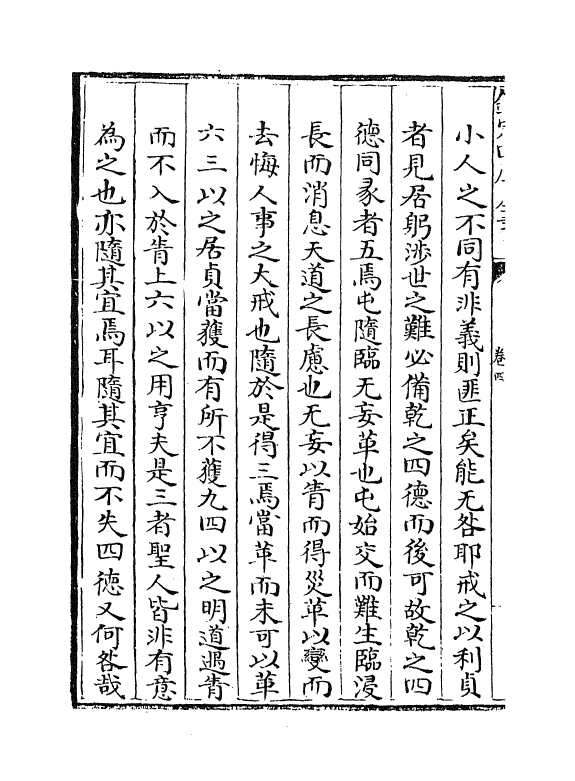 小人之不同有非義則匪正矣能无咎耶戒之以利貞
者見居躬渉世之難必備乾之四德而後可故乾之四
德同彖者五焉屯隨臨无妄革也屯始交而難生臨浸
長而消息天道之長慮也无妄以眚而得災革以變而
去悔人事之大戒也隨於是得三焉當革而未可以革
六三以之居貞當獲而有所不獲九四以之明道遇眚
而不入於眚上六以之用亨夫是三者聖人皆非有意
為之也亦隨其宜焉耳隨其宜而不失四德又何咎哉
卷四